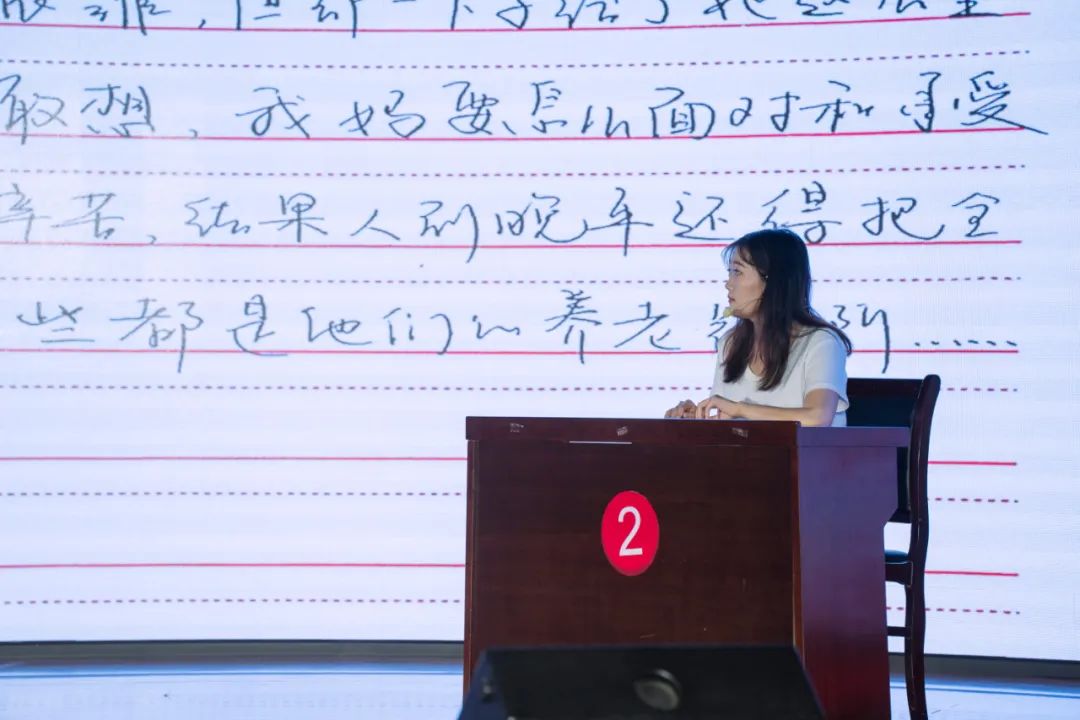 但却一下子给了她
敢想，我妈要怎么面对和承受
辛苦，结果人到晚年还得把全
些都是他们的养老
2